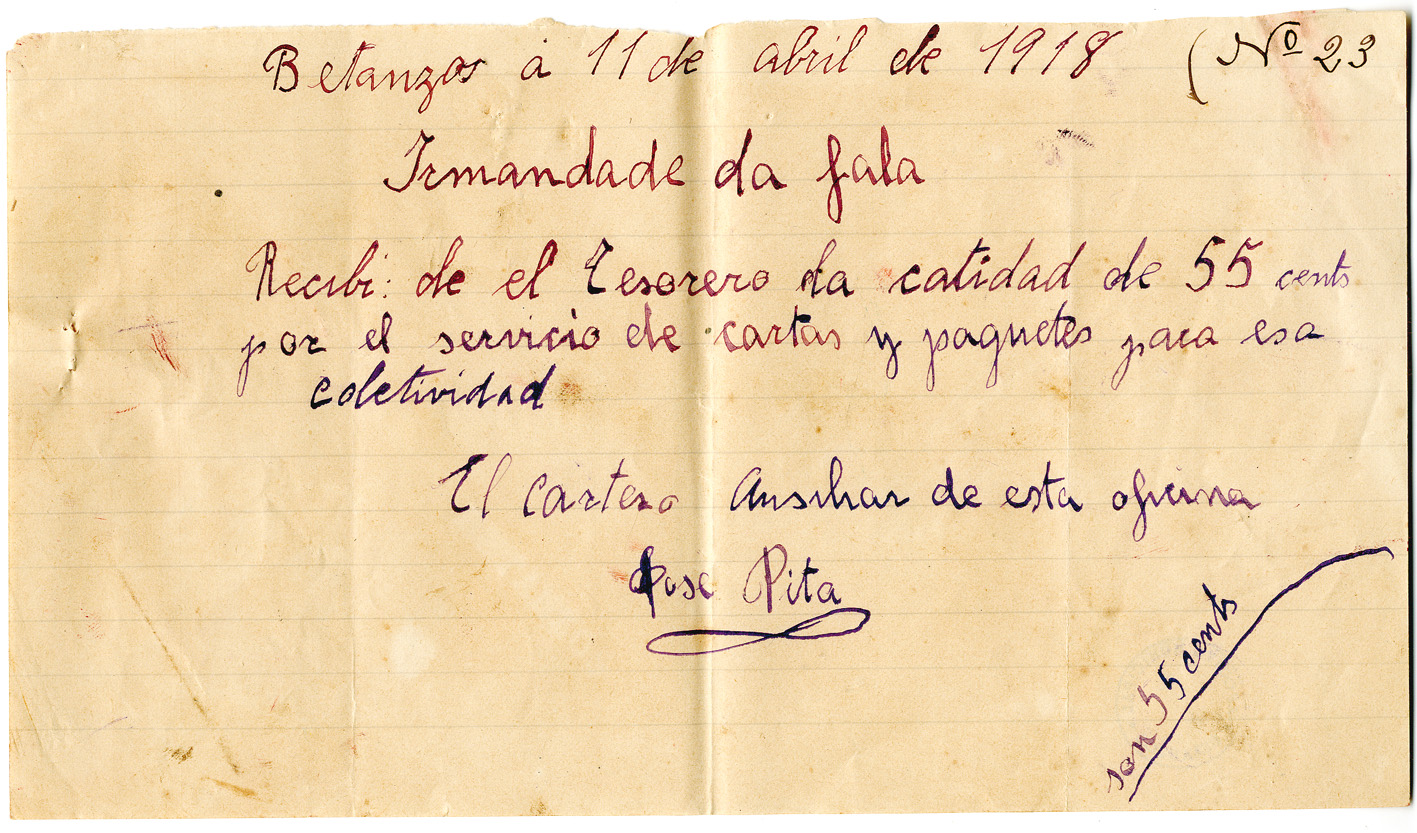 Betanzos á 11 de abril de 1918 (Nº 23
Irmandade da fala
Recibi: de el Tesorero la catidad de 55 cents
por el servicio de cartas y paquetes para esa
coletividad
El cartero Ausiliar de esta oficina
Jose Pita
son 55 cents